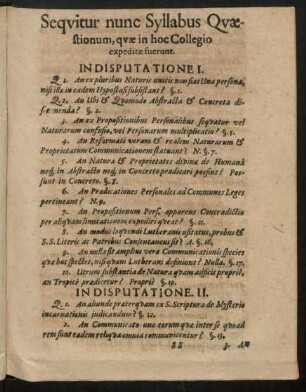 Seqvitur nunc Syllabus Quæ-
stionum, qvæ in hoc Collegio
expeditæ fuerunt.
IN DISPUTATIONE I.
Q. 1. An ex pluribus Naturis unitis non fiat Una persona,
nisi illæ in eadem Hypostasi subsistant? §. 1.
Q. 2. An Ubi & Qvomodo Abstracta & Concreta di-
scernenda? §. 2.
3. An ex Propositionibus Personalibus seqvatur vel
Naturarum confusio, vel Personarum multiplicatio? §. 5.
4. An Reformati veram & realem Naturarum &
Proprietatum Communicationem statuant? N. §. 7.
5. An Natura & Proprietates divinæ de Humanâ
neq; in Abstracto neq; in Concreto prædicari possint? Pos-
sunt in Concreto. §. 8.
6. An Prædicationes Personales ad Communes Leges
pertineant? N. 9.
7. An Propositionum Pers. apparens Contradictio
per aliqvam limitationem expediri qveat? §.
8. An modus loqvendi Lutheranis usitatus, probus &
S. S. Literis ac Patribus Consentaneus sit? A. §. 16,
9. An nulla sit amplius vera Communicationis species
qvæ huc spectet, nisi qvam Lutherani definiunt? Nulla. §. 17.
10. Utrum substantia de Natura qvam adsicit propriè,
an Tropicè prædicetur? Propriè §. 19.
IN DISPUTATIONE. II.
Q. 1. An aliunde præterqvam ex S. Scriptura de Mysterio
incarnationis judicandum? §. 12.
2. An Communicatio una eorum qvæ inter se qvoad
rem sunt eadem reliqva omnia communicentur? §. 13.
SS 3. An